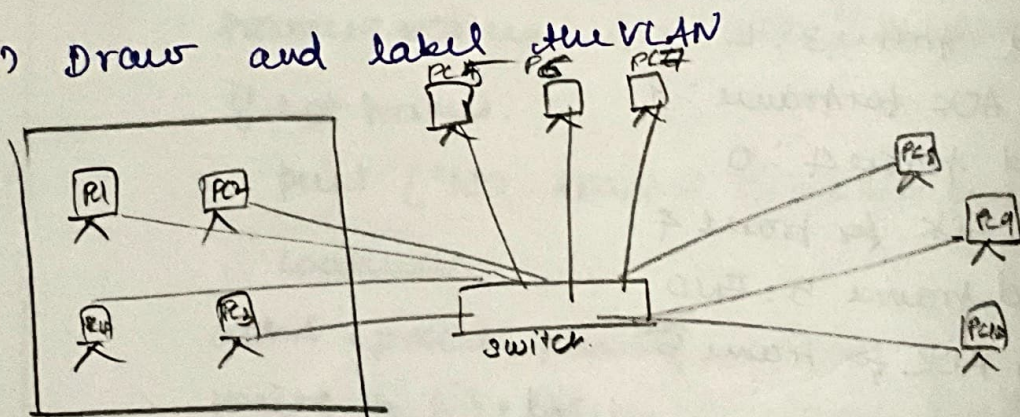 ) Draw and label the VLAN
PC PC
PC8
PC1 PC2
PC9
PC3
switch.
PC10